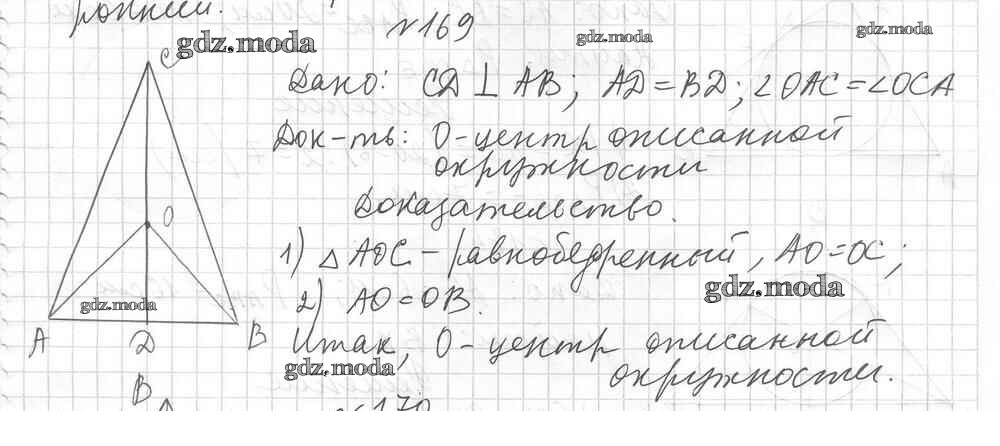 ронний.
№169
C
gdz.moda
gdz.moda
gdz.moda
Дано: CD ⊥ AB; AD = BD; ∠OAC = ∠OCA
Док-ть: O-центр описанной
окружности
Доказательство.
O
1) △ AOC - равнобедренный, AO = OC;
gdz.moda
gdz.moda
2) AO = OB.
A D B
Итак, O - центр описанной
gdz.moda
окружности.
B
№170